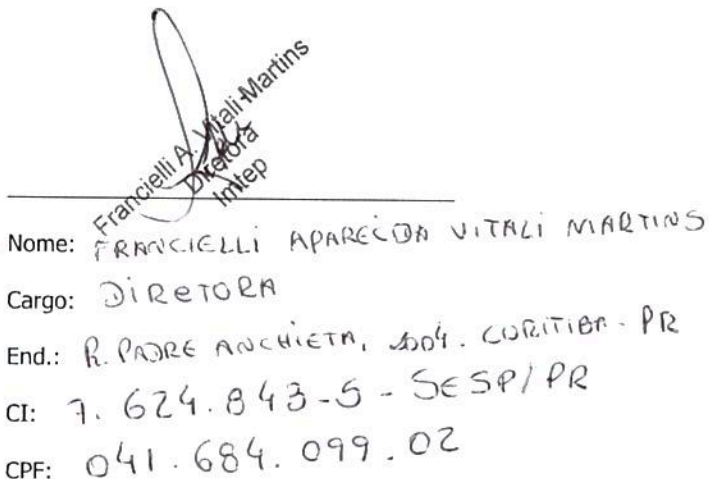 Francielli A. Vitali Martins
Diretora
Imtep
Nome: FRANCIELLI APARECIDA VITALI MARTINS
Cargo: DIRETORA
End.: R. PADRE ANCHIETA, CURITIBA - PR
CI: 7.624.843-5 - SESP/PR
CPF: 041.684.099.02